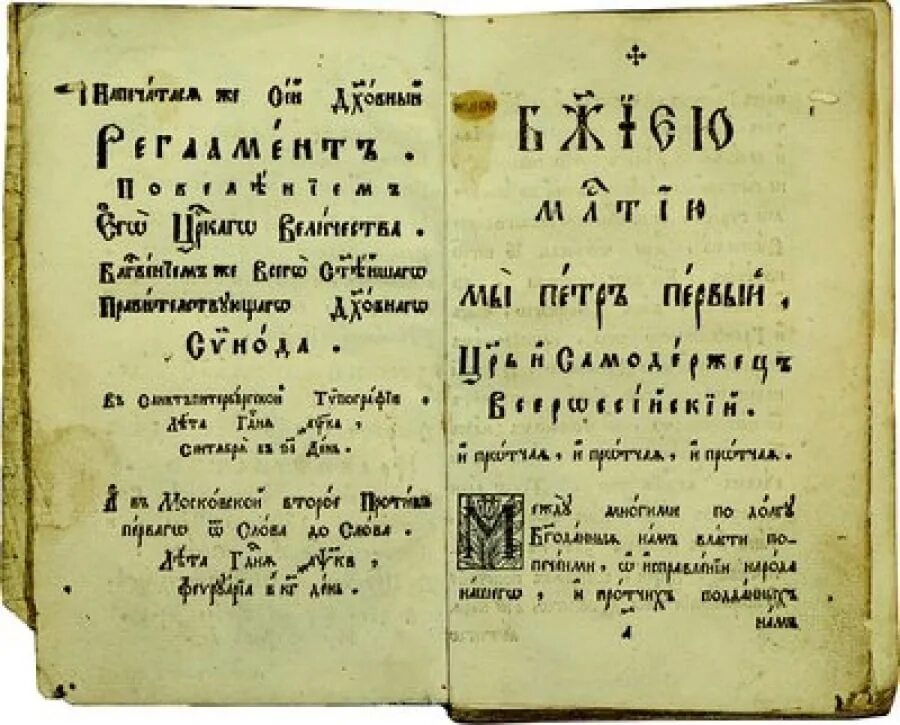 Напечатася же Сїй Дꙋхо́вный
Регламе́нтъ .
Повелѣ́нїемъ
Єгѡ̀ Ца́рскагѡ Вели́чества .
Благⷭ҇ве́нїемъ же Всегѡ̀ Ст҃ѣ́йшагѡ
Прави́телствующагѡ Дꙋхо́внагѡ
Сѷно́да .
Въ Санктъпитербꙋ́ргской Тѷпогра́фїи ,
Лѣ́та Гдⷭ҇ня ҂аѱка ,
Сентѧбрѧ̀ въ день .
А҆ въ Моско́вской второ́е Про́тивъ
пе́рвагѡ ѿ Сло́ва до Сло́ва .
Лѣ́та Гдⷭ҇ня ҂аѱкв ,
феврꙋа́рїа в кг день .
БЖ҃ІЕЮ
млⷭ҇тїю
мы̀ пе́тръ пе́рвый ,
Цр҃ь и҆ Самоде́ржецъ
Всерѡссі́йскїй .
и҆ про́тчая , и҆ про́тчая , и҆ про́тчая .
Ме́ждꙋ мно́гими по до́лгꙋ
Бг҃ода́нныя на́мъ вла́сти по-
пече́ньми , ѡ҆ и҆справле́нїи наро́да
на́шегѡ , и҆ про́тчихъ по́дданныхъ
а҃
на́мъ